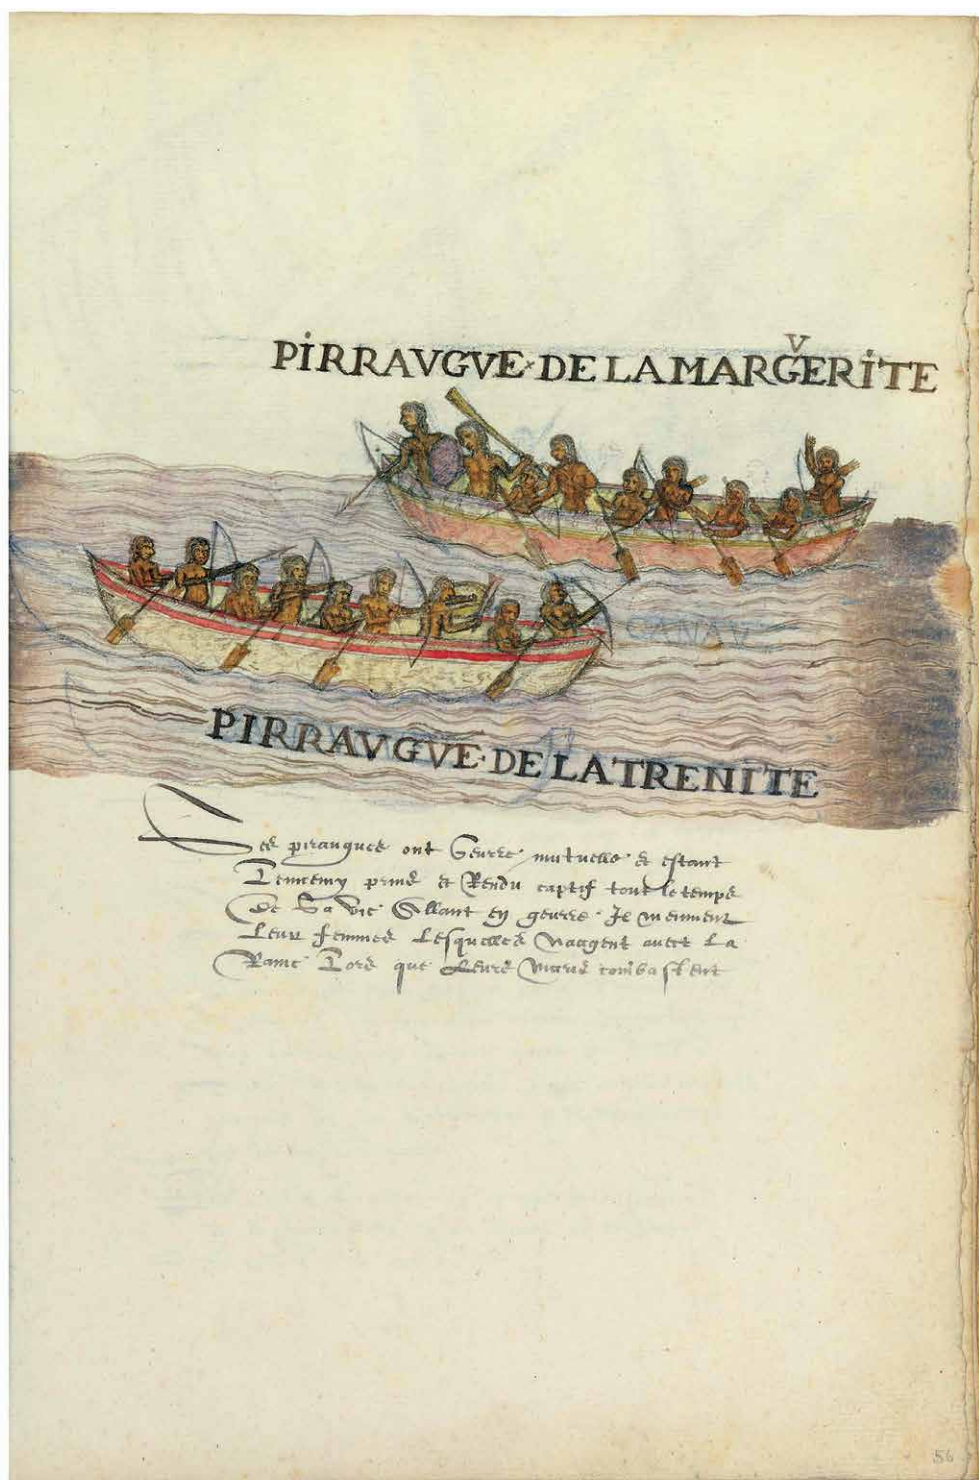 PIRRAVGVE·DE LA MARGVERITE
CANAV
PIRRAVGVE·DE LA TRENITE
Ces piraugues ont Geurre mutuelle & estant
Lennemy prins et Rendu captif tout le temps
De Sa vie Allant en geurre Ilz meinnent
Leur femmes Lesquelles naagent avecq La
Rame Lors que Leurs maris combastent
56